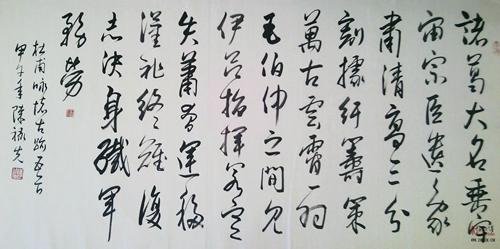 諸葛大名垂宇
宙宗臣遺像
肅清高三分
割據紆籌策
萬古雲霄一羽
毛伯仲之間見
伊呂指揮若定
失蕭曹運移
漢祚終難復
志決身殲軍
務勞
杜甫咏懷古跡五首
甲午年陳